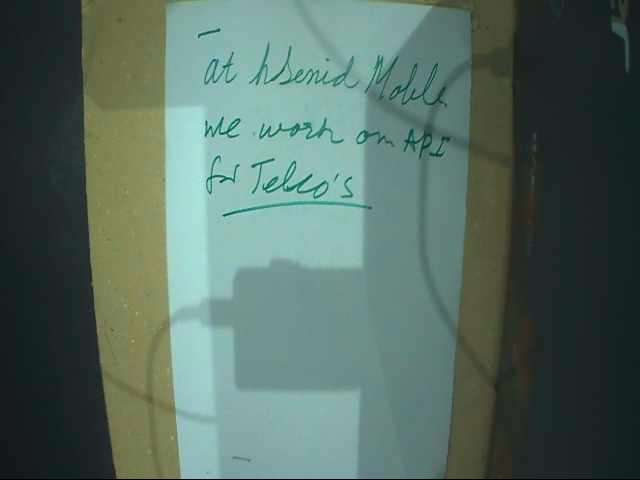 at hSenid Mobile
we work on API
for Telco's